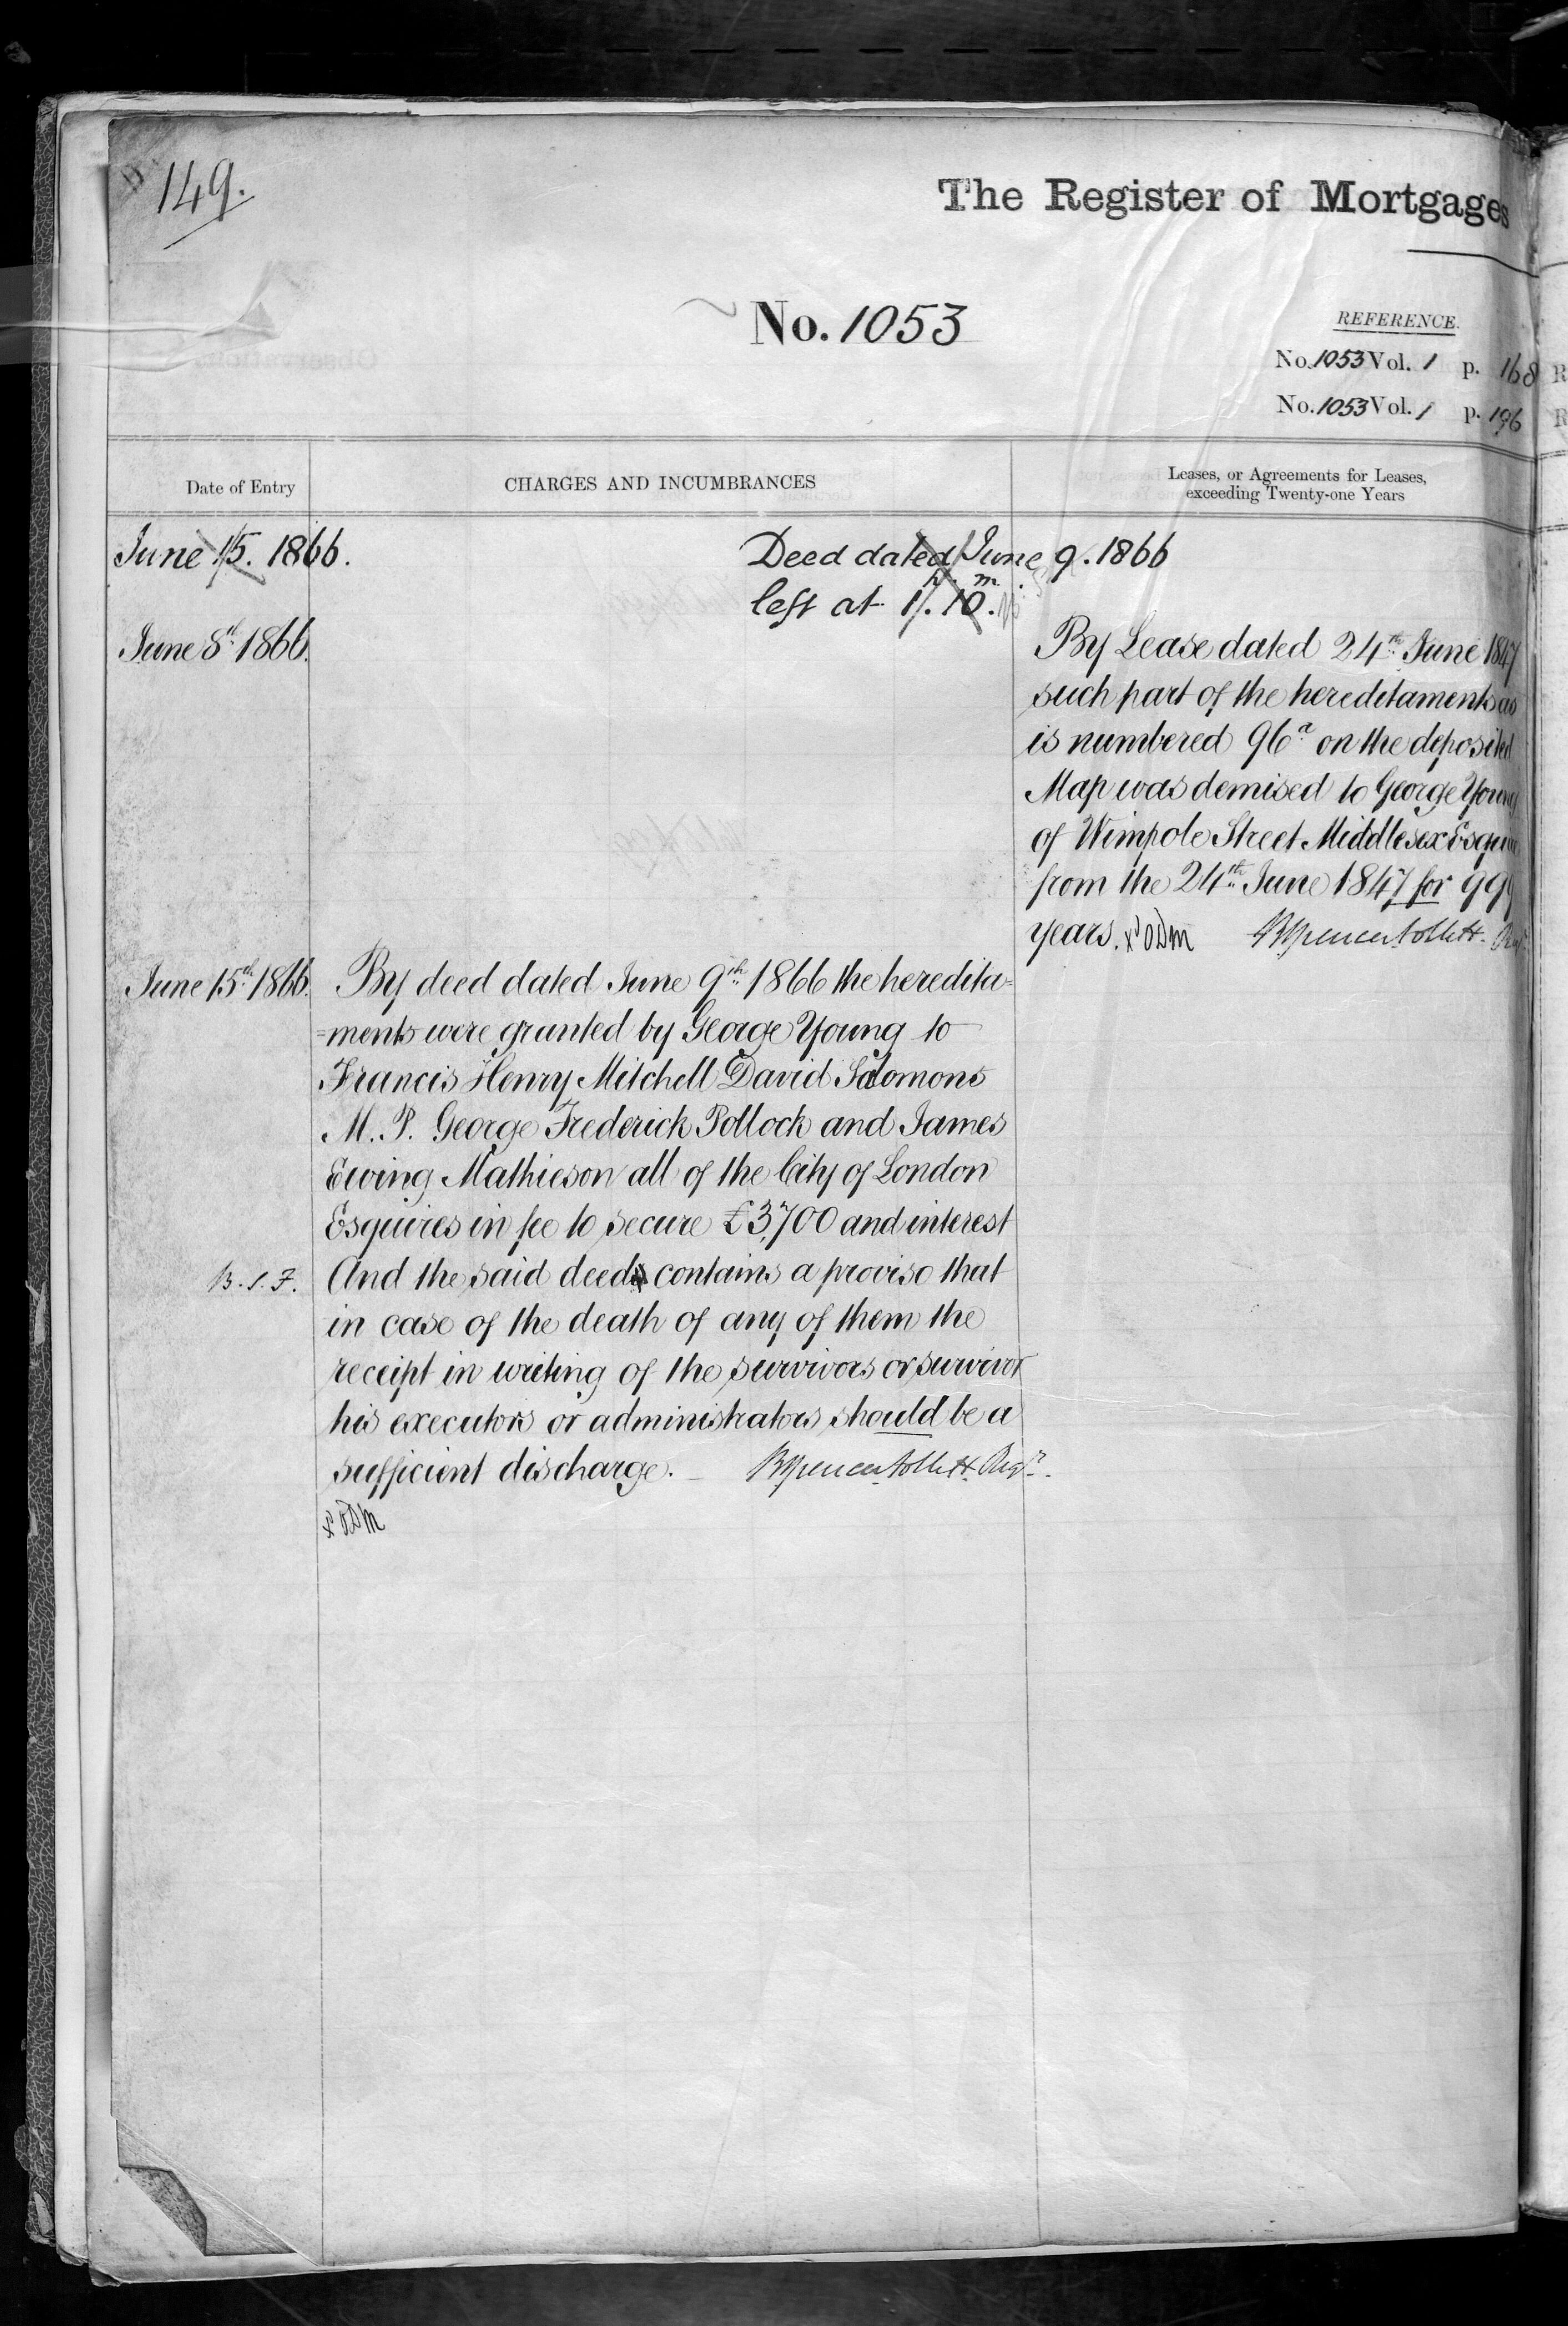 149.
The Register of Mortgages
No. 1053
REFERENCE.
No. 1053 Vol. 1 p. 168
No. 1053 Vol. 1 p. 196
Date of Entry
CHARGES AND INCUMBRANCES
Leases, or Agreements for Leases,
exceeding Twenty-one Years
June 15. 1866. Deed dated June 9. 1866
left at 1h. 10m.
June 8th 1866.
By Lease dated 24th June 1847
such part of the hereditaments as
is numbered 96a on the deposited
Map was demised to George Young
of Wimpole Street Middlesex Esquire
from the 24th June 1847 for 999
years.
June 15th 1866. By deed dated June 9th 1866 the heredita=
=ments were granted by George Young to
Francis Henry Mitchell David Salomons
M. P. George Frederick Pollock and James
Ewing Mathieson all of the City of London
Esquires in fee to secure £3,700 and interest
B.S.F. And the said deed contains a proviso that
in case of the death of any of them the
receipt in writing of the survivors or survivor
his executors or administrators should be a
sufficient discharge. — Regr.